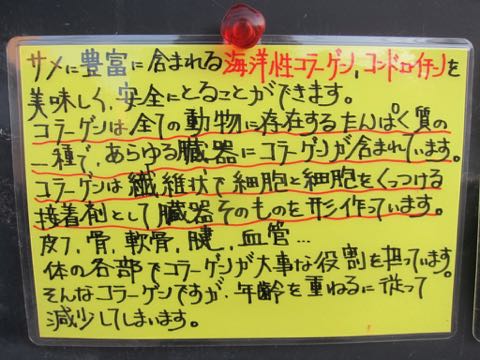 サメに豊富に含まれる海洋性コラーゲン,コンドロイチンを
美味しく、安全にとることができます。
コラーゲンは全ての動物に存在するたんぱく質の
一種で、あらゆる臓器にコラーゲンが含まれています。
コラーゲンは繊維状で細胞と細胞をくっつける
接着剤として臓器そのものを形作っています。
皮フ,骨,軟骨,腱,血管…
体の各部でコラーゲンが大事な役割を担っています。
そんなコラーゲンですが、年齢を重ねるに従って
減少してしまいます。